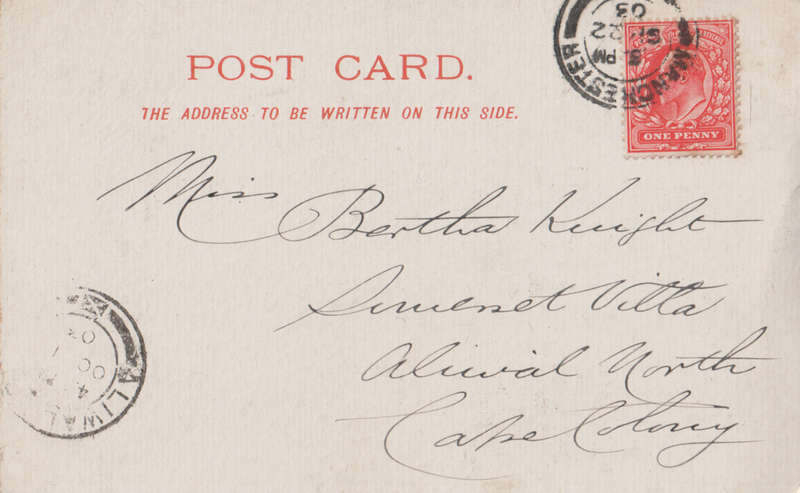 POST CARD.
THE ADDRESS TO BE WRITTEN ON THIS SIDE.
MANCHESTER
PM
22
03
ONE PENNY
Miss
Bertha Knight
Somerset Villa
Aliwal North
Cape Colony
ALIWAL
OC
03